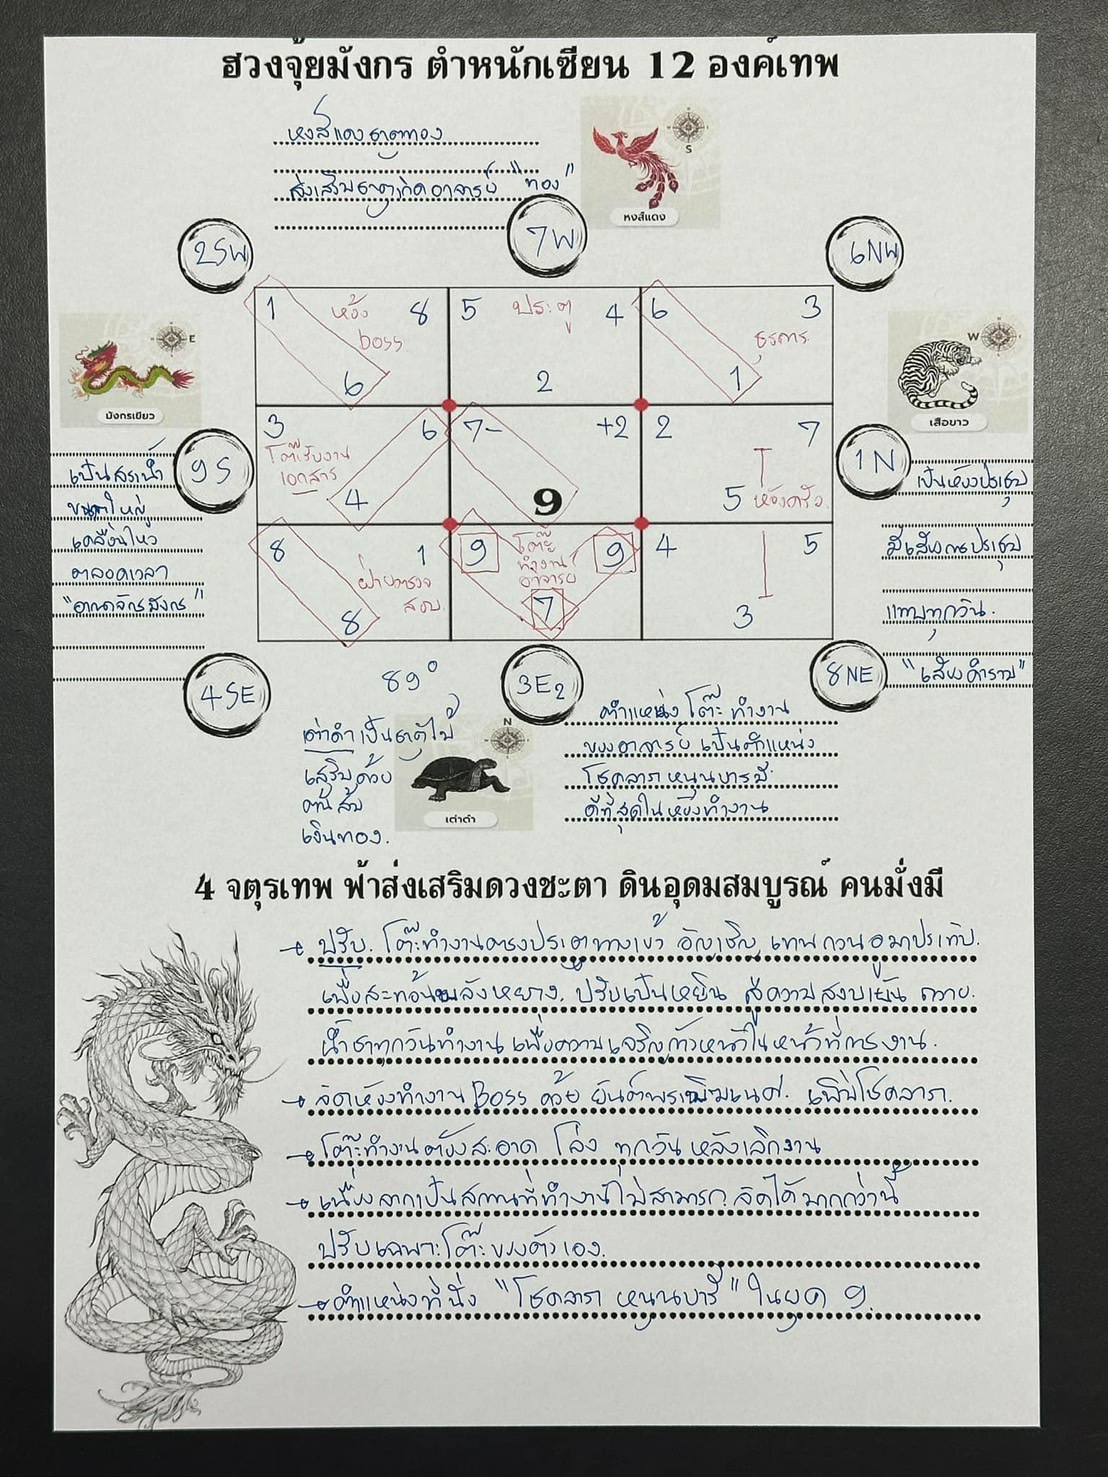 ฮวงจุ้ยมังกร ตำหนักเซียน 12 องค์เทพ
หงส์แดงธาตุทอง
ส่งเสริมธาตุเกิดอาจารย์ "ทอง"
S
หงส์แดง
2SW
7W
6NW
1 ห้อง boss 8
6
5 ประตู 4
2
6 3
ธุรการ
1
E
มังกรเขียว
W
เสือขาว
9S
3 6
โต๊ะรับงาน
เอกสาร
4
7- +2
9
2 7
5 ห้องครัว
1N
เป็นสระน้ำ
ขนาดใหญ่
เคลื่อนไหว
ตลอดเวลา
"อาณาจักรมังกร"
เป็นห้องประชุม
มีเสียงคนประชุม
แทบทุกวัน.
"เสียงคำราม"
8 1
ฝ่ายตรวจ
สอบ
8
9 โต๊ะ 9
ทำงาน
อาจารย์
7
4 5
3
4SE
89°
3E2
8NE
เต่าดำเป็นธาตุไม้
เสริมด้วย
ต้นส้ม
เงินทอง.
N
เต่าดำ
ตำแหน่งโต๊ะทำงาน
ของอาจารย์ เป็นตำแหน่ง
โชคลาภ หนุนบารมี
ดีที่สุดในห้องทำงาน
4 จตุรเทพ ฟ้าส่งเสริมดวงชะตา ดินอุดมสมบูรณ์ คนมั่งมี
ปรับ. โต๊ะทำงานตรงประตูทางเข้า อัญเชิญ เทพกวนอูมาประทับ.
เพื่อสะท้อนพลังหยาง. ปรับเป็นหยิน สู่ความสงบเย็น ถวาย.
น้ำชาทุกวันทำงาน เพื่อความเจริญก้าวหน้าในหน้าที่การงาน.
จัดห้องทำงาน Boss ด้วย ยันต์พระพิฆเนศ. เพิ่มโชคลาภ.
โต๊ะทำงานต้องสะอาด โล่ง ทุกวัน หลังเลิกงาน
เนื่องจากเป็นสถานที่ทำงานไม่สามารถ จัดได้มากกว่านี้
ปรับเฉพาะโต๊ะของตัวเอง.
ตำแหน่งที่นั่ง "โชคลาภ หนุนบารมี" ในยุค 9.